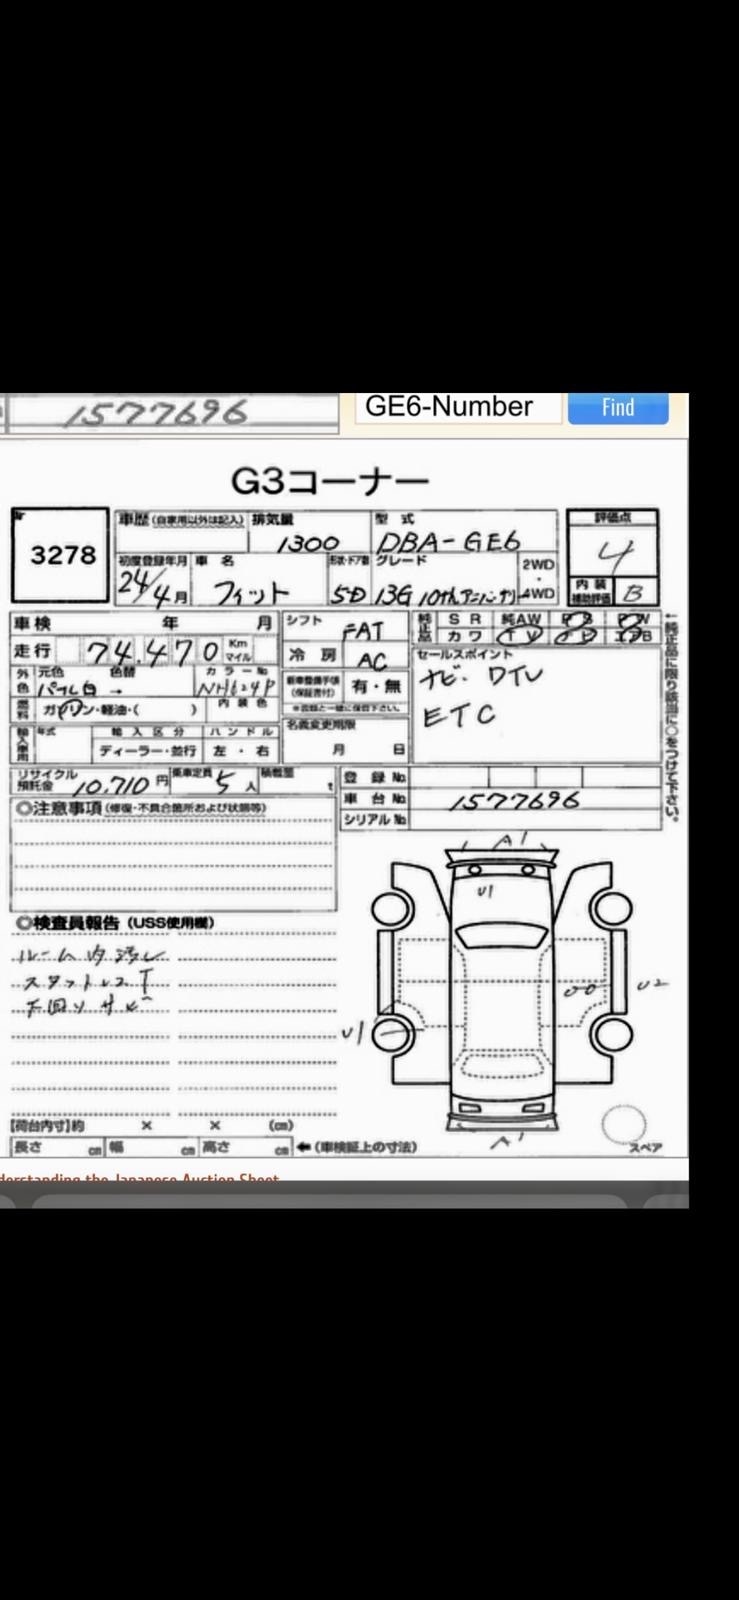 1577696
GE6-Number
Find
G3コーナー
3278
車歴 (自家用以外は記入) 排気量 型式 評価点
1300 DBA-GE6 4
初度登録年月 車名 形状・ドア数 グレード 2WD・4WD
24/4月 フィット 5D 13G 10th アニバーサリ
内装補助評価 B
車検 年 月 シフト FAT
純正品 SR 純AW PS PW
カワ TV
走行 74,470 Km マイル 冷房 AC
外色 元色 色替 カラーNo
パール白 → NH624P
新車整備手帳 (保証書付) 有・無
※書類と一緒に保管下さい。
セールスポイント
ナビ・DTV
ETC
←純正品に限り該当に○をつけて下さい。
燃料 ガソリン・軽油・( ) 内装色
名義変更期限
月 日
輸入車用 年式 輸入区分 ハンドル
ディーラー・並行 左・右
リサイクル預託金 10,710円 乗車定員 5人 積載量 t
登録No.
車台No. 1577696
シリアルNo
◎注意事項 (修復・不具合箇所および状態等)
◎検査員報告 (USS使用欄)
ルーム内汚れ
スタットレスT
下回りサビ
A1
U1
U2
U1
A1
スペア
【荷台内寸】約 × × (cm)
長さ cm 幅 cm 高さ cm ←(車検証上の寸法)
derstanding the Japanese Auction Sheet